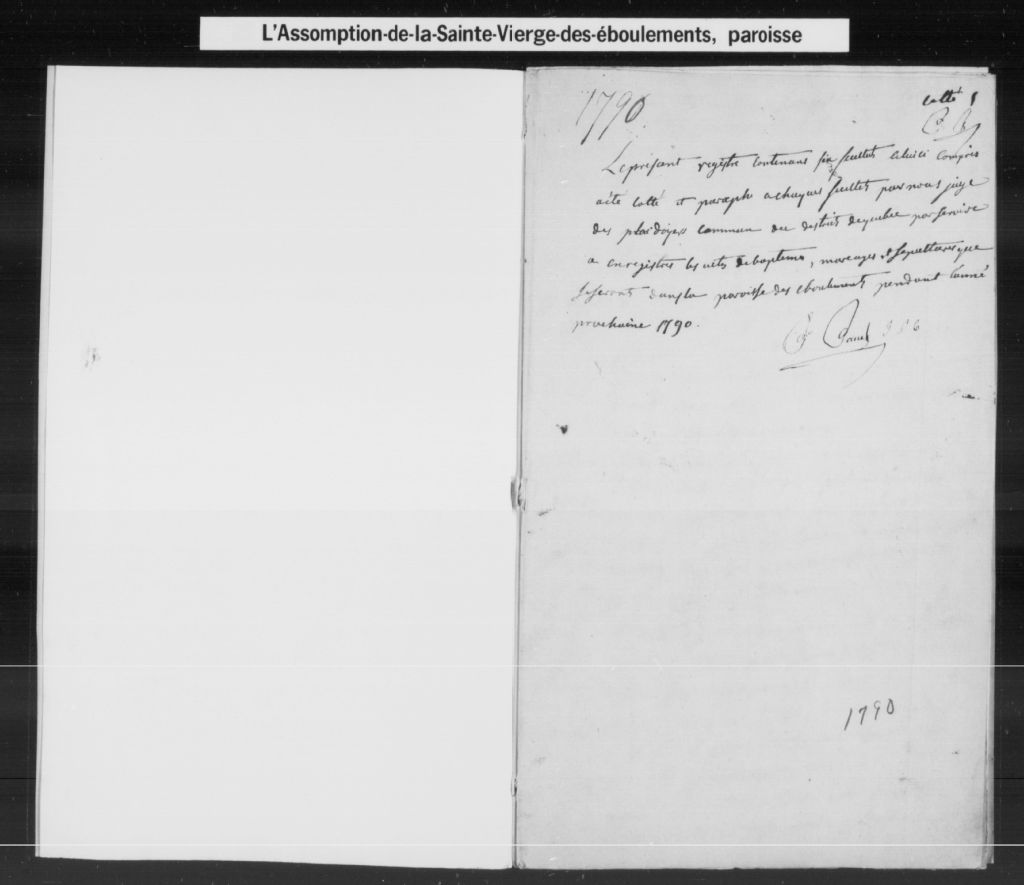 L'Assomption-de-la-Sainte-Vierge-des-éboulements, paroisse
1790
Cotté 1
Le présent registre contenans six feuillets celuici compris
a été cotté et paraphe a chaques feuillets par nous juge
des plaidoyers commun du district de quebec par servire
a enregistres les actes de baptemes, mareages et sepultures que
se feront dans la paroisse des eboulements pendant l'anné
prochaine 1790.
1790